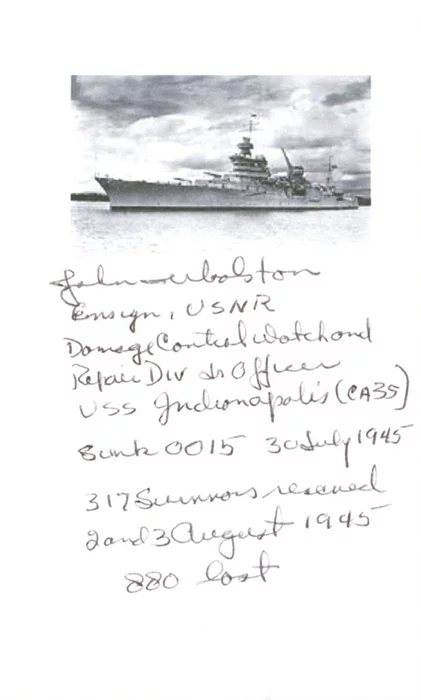 John Woolston
Ensign, USNR
Damage Control Watch and
Repair Div Jr Officer
USS Indianapolis (CA35)
Sunk 0015 30 July 1945
317 Survivors rescued
2 and 3 August 1945
880 lost